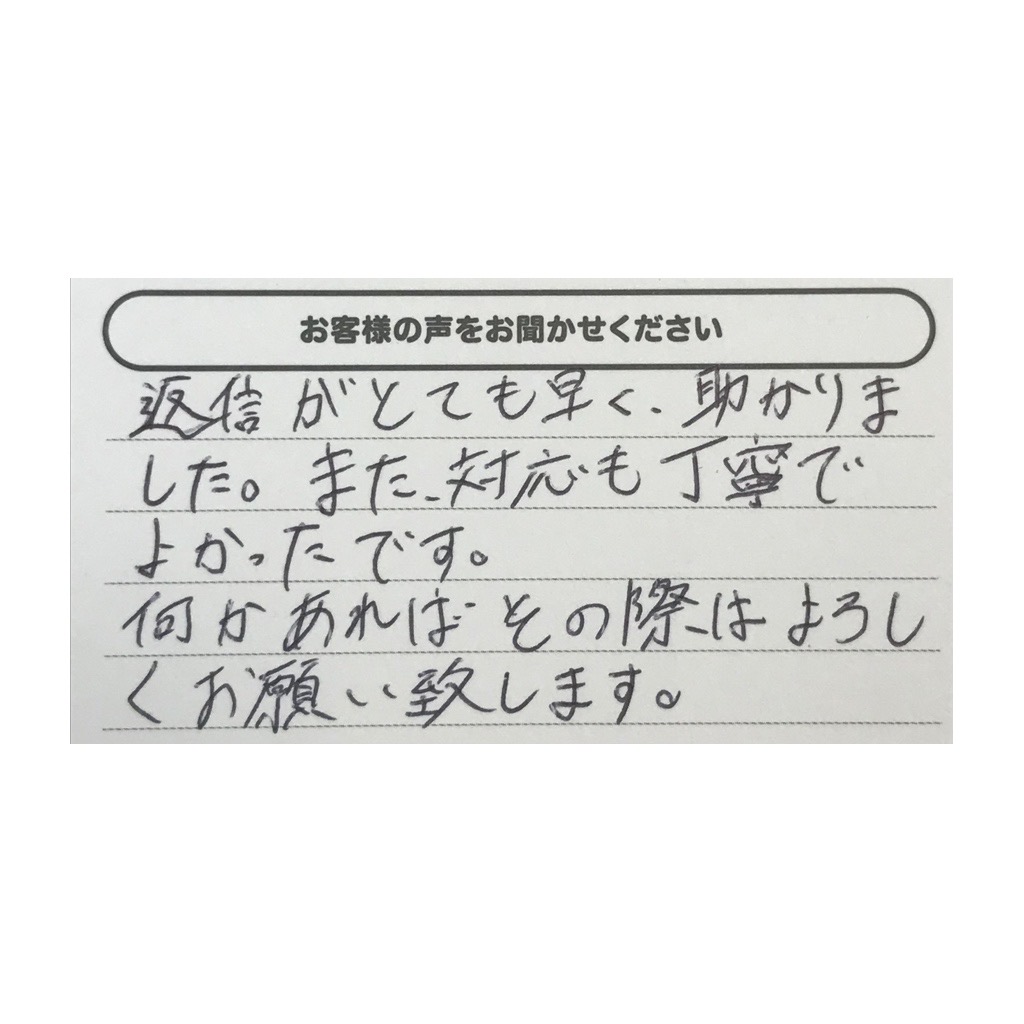 お客様の声をお聞かせください
返信がとても早く、助かりま
した。また、対応も丁寧で
よかったです。
何かあればその際はよろし
くお願い致します。